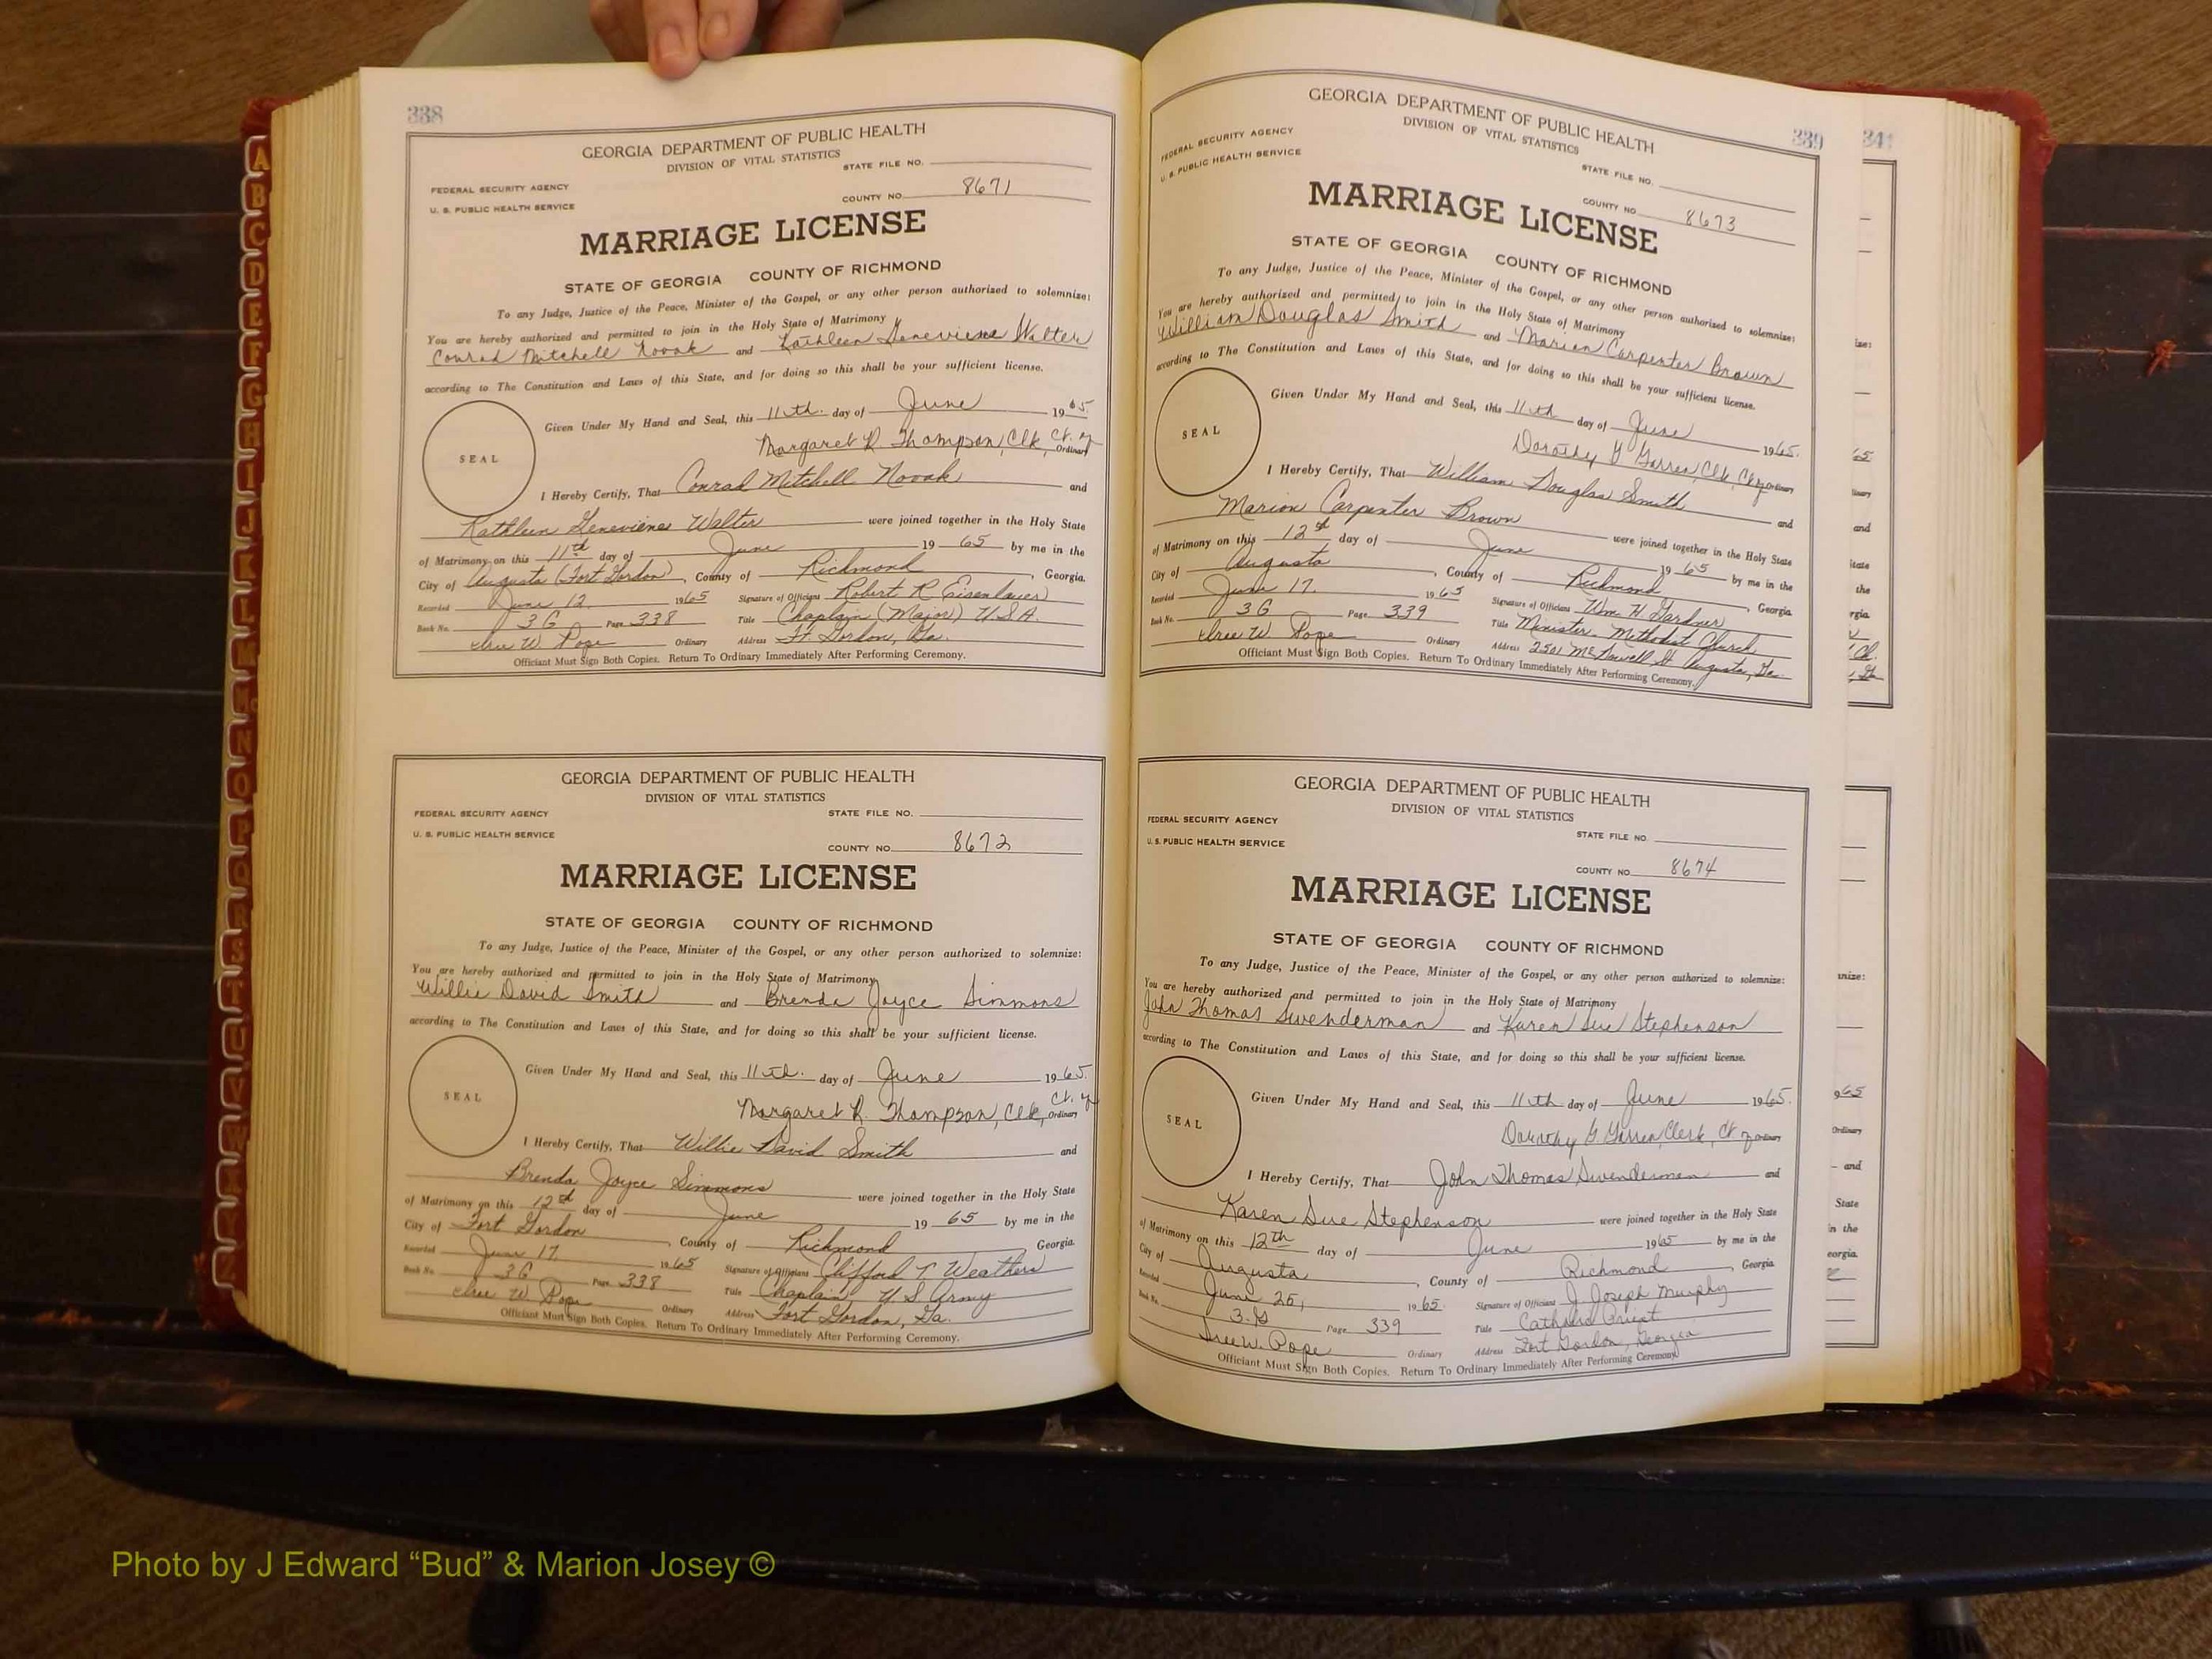 338
GEORGIA DEPARTMENT OF PUBLIC HEALTH
DIVISION OF VITAL STATISTICS
STATE FILE NO.
FEDERAL SECURITY AGENCY
U. S. PUBLIC HEALTH SERVICE
COUNTY NO. 8671
MARRIAGE LICENSE
STATE OF GEORGIA COUNTY OF RICHMOND
To any Judge, Justice of the Peace, Minister of the Gospel, or any other person authorized to solemnize:
You are hereby authorized and permitted to join in the Holy State of Matrimony
Conrad Mitchell Novak and Kathleen Genevieve Walter
according to The Constitution and Laws of this State, and for doing so this shall be your sufficient license.
Given Under My Hand and Seal, this 11th. day of June 1965.
SEAL
Margaret R. Thompson, Clk, Ct. of Ordinary
I Hereby Certify, That Conrad Mitchell Novak and
Kathleen Genevieve Walter were joined together in the Holy State
of Matrimony on this 11th day of June 19 65 by me in the
City of Augusta (Fort Gordon), County of Richmond, Georgia.
Recorded June 12 1965 Signature of Officiant Robert R Eisenlauer
Book No. 3G Page 338 Title Chaplain (Major) U.S.A.
W. Pope Ordinary Address Ft. Gordon, Ga.
Officiant Must Sign Both Copies. Return To Ordinary Immediately After Performing Ceremony.
GEORGIA DEPARTMENT OF PUBLIC HEALTH
DIVISION OF VITAL STATISTICS
FEDERAL SECURITY AGENCY STATE FILE NO.
U. S. PUBLIC HEALTH SERVICE
COUNTY NO. 8672
MARRIAGE LICENSE
STATE OF GEORGIA COUNTY OF RICHMOND
To any Judge, Justice of the Peace, Minister of the Gospel, or any other person authorized to solemnize:
You are hereby authorized and permitted to join in the Holy State of Matrimony
Willie David Smith and Brenda Joyce Simmons
according to The Constitution and Laws of this State, and for doing so this shall be your sufficient license.
Given Under My Hand and Seal, this 11th. day of June 1965.
SEAL
Margaret R. Thompson, Clk, Ct. of Ordinary
I Hereby Certify, That Willie David Smith and
Brenda Joyce Simmons were joined together in the Holy State
of Matrimony on this 12th day of June 19 65 by me in the
City of Fort Gordon, County of Richmond Georgia.
Recorded June 17 1965 Signature of Officiant Clifford T. Weathers
Book No. 3G Page 338 Title Chaplain U.S. Army
W. Pope Ordinary Address Fort Gordon, Ga.
Officiant Must Sign Both Copies. Return To Ordinary Immediately After Performing Ceremony.
339
GEORGIA DEPARTMENT OF PUBLIC HEALTH
DIVISION OF VITAL STATISTICS
FEDERAL SECURITY AGENCY
U. S. PUBLIC HEALTH SERVICE
STATE FILE NO.
COUNTY NO. 8673
MARRIAGE LICENSE
STATE OF GEORGIA COUNTY OF RICHMOND
To any Judge, Justice of the Peace, Minister of the Gospel, or any other person authorized to solemnize:
You are hereby authorized and permitted to join in the Holy State of Matrimony
William Douglas Smith and Marion Carpenter Brown
according to The Constitution and Laws of this State, and for doing so this shall be your sufficient license.
Given Under My Hand and Seal, this 11th day of June 1965.
SEAL
Dorothy G Clk, Ct of Ordinary
I Hereby Certify, That William Douglas Smith and
Marion Carpenter Brown were joined together in the Holy State
of Matrimony on this 12th day of June 19 65 by me in the
City of Augusta, County of Richmond, Georgia.
Recorded June 17. 1965 Signature of Officiant Wm H Gardner
Book No. 3G Page 339 Title Minister - Methodist Church
W. Pope Ordinary Address 2501 McDowell St Augusta, Ga.
Officiant Must Sign Both Copies. Return To Ordinary Immediately After Performing Ceremony.
GEORGIA DEPARTMENT OF PUBLIC HEALTH
DIVISION OF VITAL STATISTICS
FEDERAL SECURITY AGENCY
STATE FILE NO.
U. S. PUBLIC HEALTH SERVICE
COUNTY NO. 8674
MARRIAGE LICENSE
STATE OF GEORGIA COUNTY OF RICHMOND
To any Judge, Justice of the Peace, Minister of the Gospel, or any other person authorized to solemnize:
You are hereby authorized and permitted to join in the Holy State of Matrimony
John Thomas Swenderman and Karen Sue Stephenson
according to The Constitution and Laws of this State, and for doing so this shall be your sufficient license.
Given Under My Hand and Seal, this 11th day of June 1965.
SEAL
Dorothy G Clerk, Ct of Ordinary
I Hereby Certify, That John Thomas Swenderman and
Karen Sue Stephenson were joined together in the Holy State
of Matrimony on this 12th day of June 1965 by me in the
City of Augusta, County of Richmond, Georgia
Recorded June 25, 1965 Signature of Officiant J Joseph Murphy
Book No. 3.G Page 339 Title Catholic Priest
W. Pope Ordinary Address Fort Gordon, Georgia
Officiant Must Sign Both Copies. Return To Ordinary Immediately After Performing Ceremony.
341
A
B
C
D
E
F
G
H
I
J
K
L
M
Mc
N
O
P
Q
R
S
T
U
V
W
Photo by J Edward “Bud” & Marion Josey ©